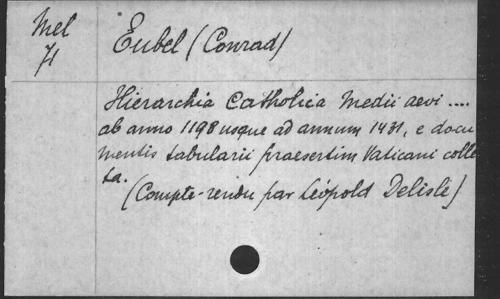 Mel
71
Eubel (Conrad)
Hierarchia Catholica Medii aevi ....
ab anno 1198 usque ad annum 1431, e docu
mentis tabularii praesertim Vaticani colle
ta.
(Compte-rendu par Léopold Delisle)